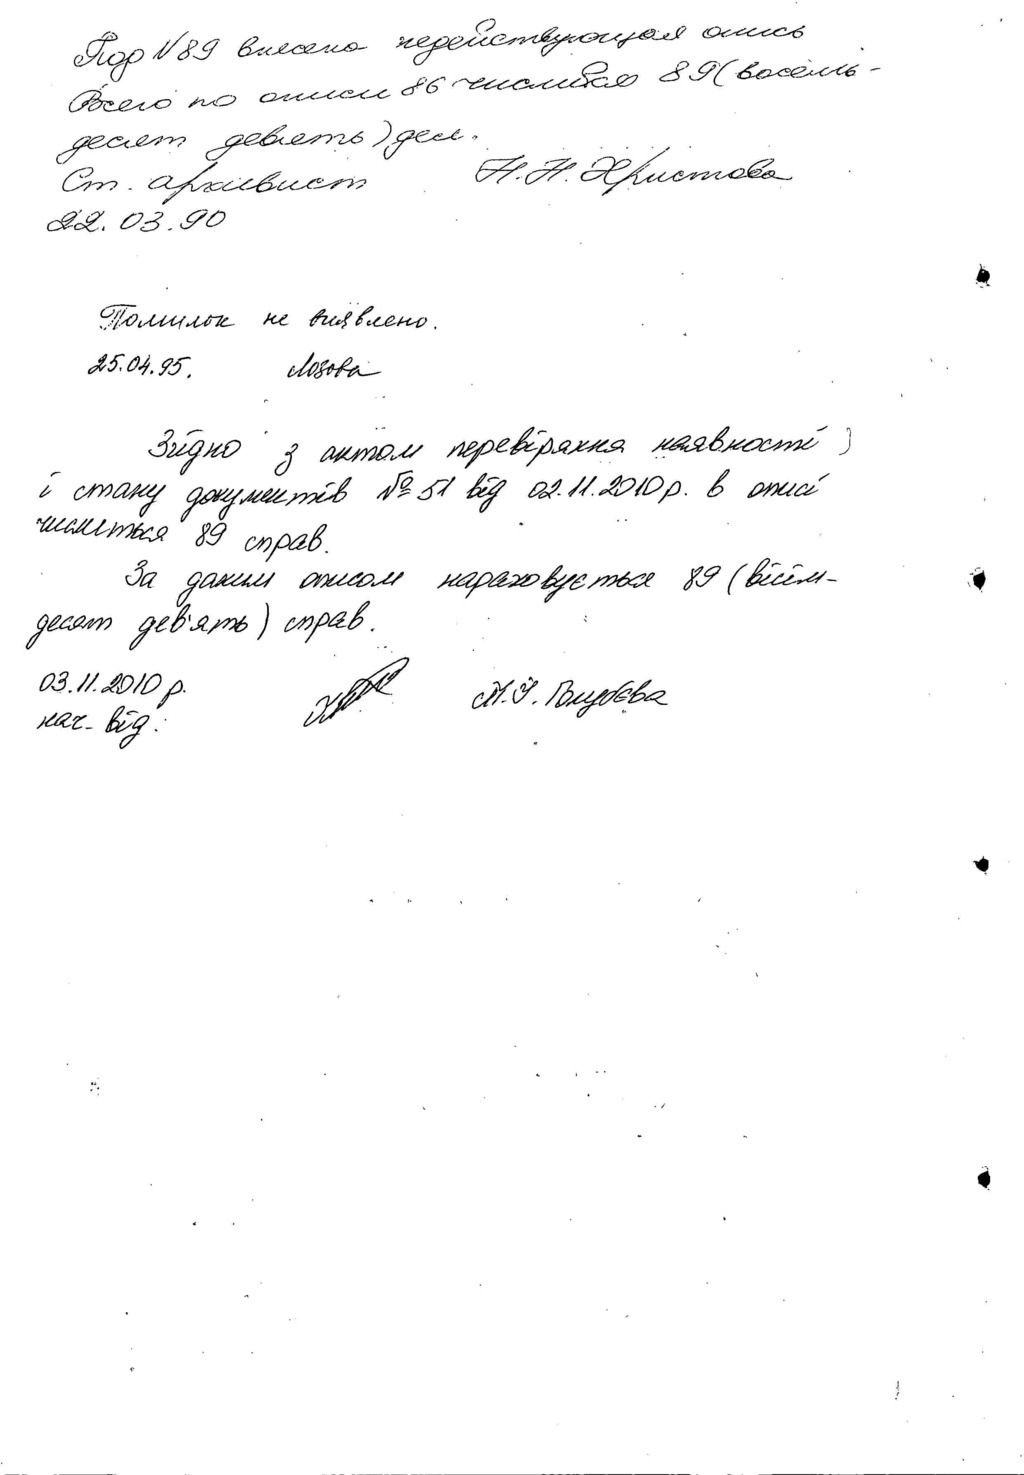 Под N 89 внесена недействующая опись
Всего по описи 86 числится 89 (восемь-
десят девять) дел.
Ст. архивист Н.Н. Христова
22.03.90
Помилок не виявлено.
25.04.95. Лозова
Згідно з актом перевіряння наявності
і стану документів № 51 від 02.11.2010 р. в описі
числиться 89 справ.
За даним описом нараховується 89 (вісім-
десят дев'ять) справ.
03.11.2010 р.
нач. від. Голубєва